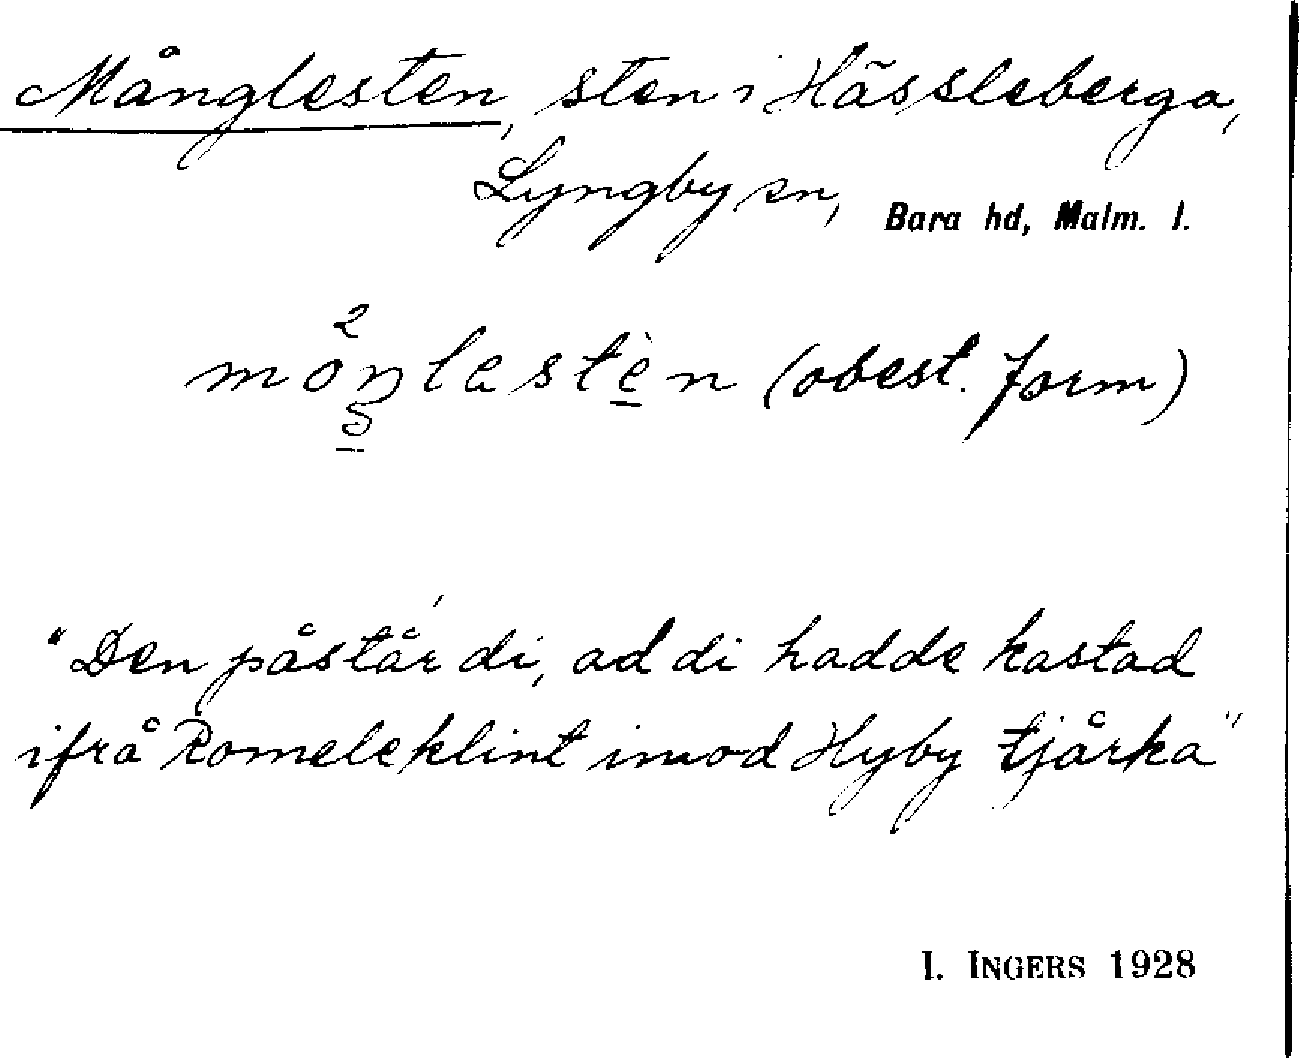 Månglesten, sten i Hässleberga,
Lyngby sn, Bara hd, Malm. l.
moŋlestèn (obest. form)
"Den påstår di, ad di hadde kastad
ifrå Romeleklint imod Hyby tjårka"
I. INGERS 1928